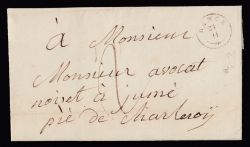 à Monsieur
Monsieur avocat
noiset à jumé
pré de Charleroÿ